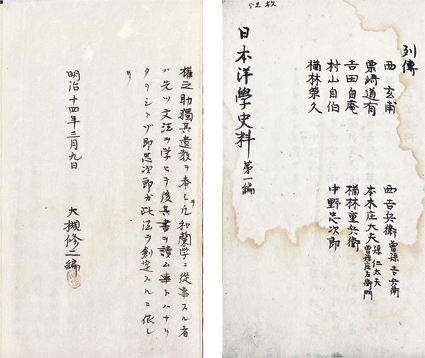 五拾枚
日本洋學史料 第一編
列傳
西玄甫 西吉兵衛 曽孫吉兵衛
栗崎道有 本木庄太夫 孫仁太夫 曽孫庄左衛門
吉田自庵 楢林重兵衛
村山自伯 中野忠次郎
楢林榮久
権之助獨其遺教ヲ奉シ凡和蘭学ニ從事スル者
ハ先ツ文法ヲ学ヒテ後其書ヲ讀ム事トハナリ
タリシトゾ即忠次郎ガ此法ヲ創定スルニ依レ
リ
明治十四年三月九日
大槻修二編